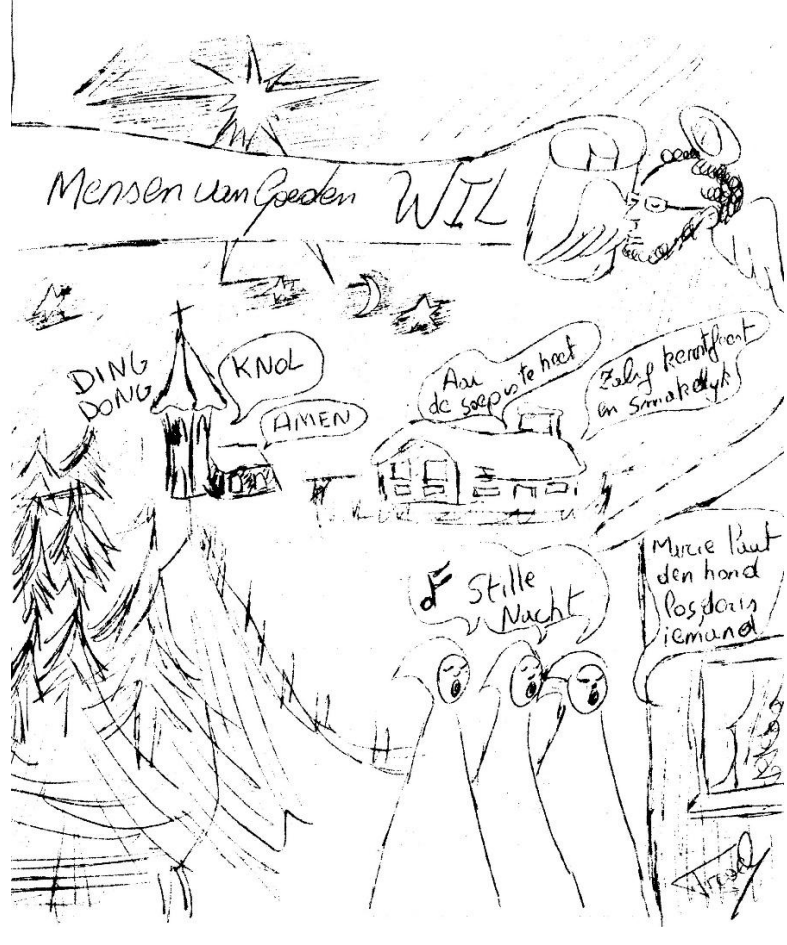 Mensen van Goeden WIL
DING
DONG
KNOL
AMEN
Aai
de soep is te heet
Zalig kerstfeest
en smakelijk
Stille
Nacht
Marie laat
den hond
los, daar is
iemand